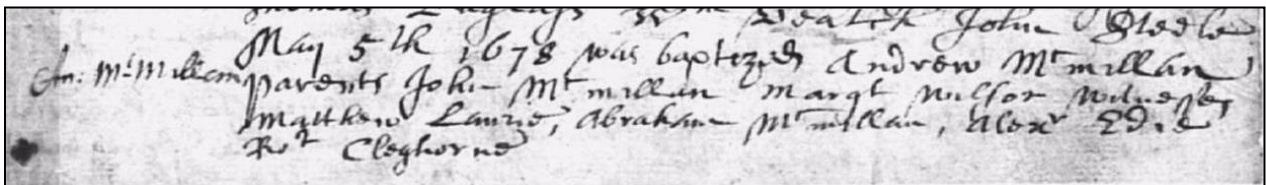 John Steele
May 5th 1678 was baptized Andrew Mcmillan
An: McMillam parents John Mcmillan Margt Wilson witnesses
Matthew Laurie, Abraham Mcmillan, Alexr Edie
Rot Cleghorne